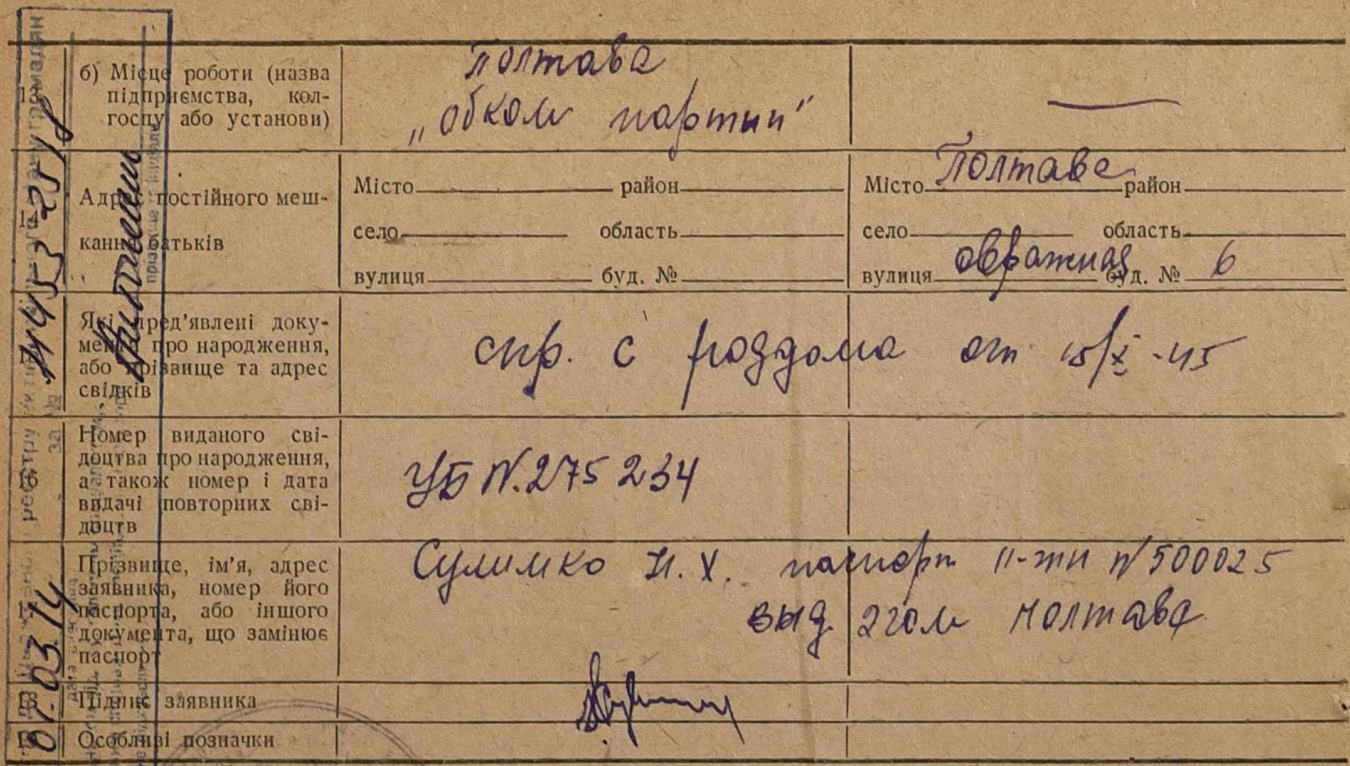 б) Місце роботи (назва
підприємства, кол-
госпу або установи)
Полтава
„обком партии"
Адрес постійного меш-
кання батьків
Місто район
село область
вулиця буд. №
Місто Полтава район
село область
вулиця овражная буд. № 6
Які пред'явлені доку-
менти про народження,
або прізвище та адрес
свідків
спр. с роддома от 15/X-45
16
Номер виданого сві-
доцтва про народження,
а також номер і дата
видачі повторних сві-
доцтв
УБ N. 275234
Прізвище, ім'я, адрес
заявника, номер його
паспорта, або іншого
документа, що замінює
паспорт
Сулимко И. Х. паспорт II-жи № 500025
выд 2 гом Полтава
18
Підпис заявника
19
Особливі позначки
01.03.14
за №